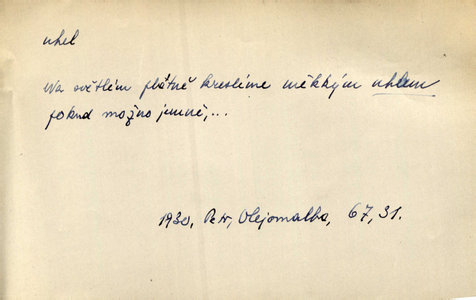 uhel
Na světlém plátně kreslíme měkkým uhlem
pokud možno jemně,...
1930, Petr, Olejomalba, 67,31.